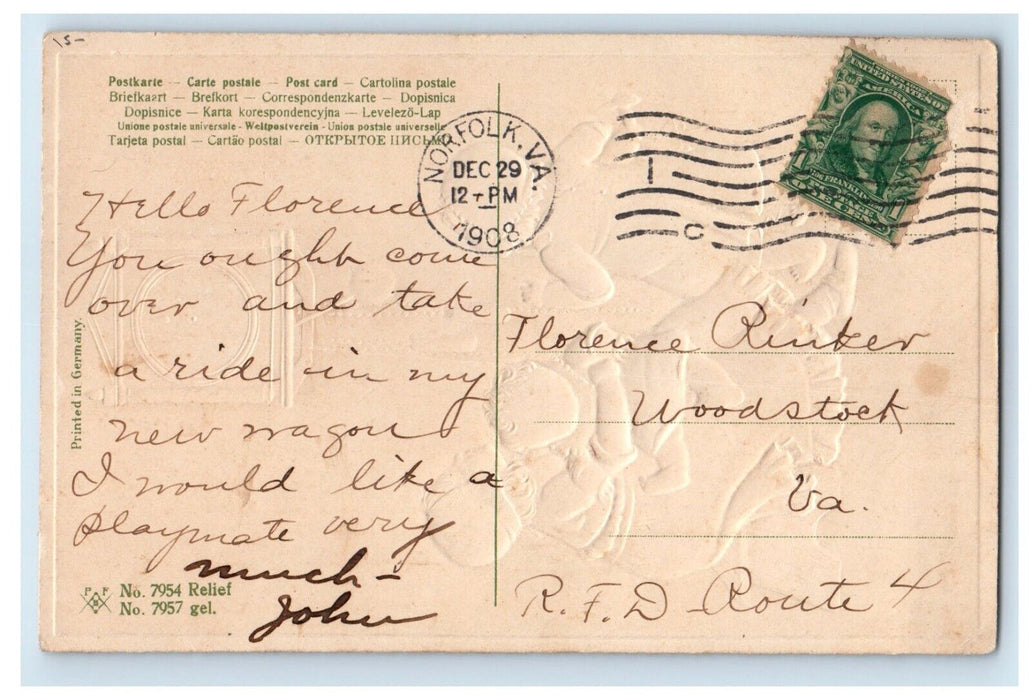 15-
Postkarte — Carte postale — Post card — Cartolina postale
Briefkaart — Brefkort — Correspondenzkarte — Dopisnica
Dopisnice — Karta korespondencyjna — Levelező-Lap
Unione postale universale - Weltpostverein - Union postale universelle
Tarjeta postal — Cartão postal — ОТКРЫТОЕ ПИСЬМО
NORFOLK, VA.
DEC 29
12-PM
1908
1
C
UNITED STATES OF
AMERICA
FRANKLIN
1
1
Hello Florence
You ought come
over and take
a ride in my
new wagon
I would like a
playmate very
much -
John
Florence Rinker
Woodstock
Va.
R.F.D - Route 4
Printed in Germany.
PFB
No. 7954 Relief
No. 7957 gel.